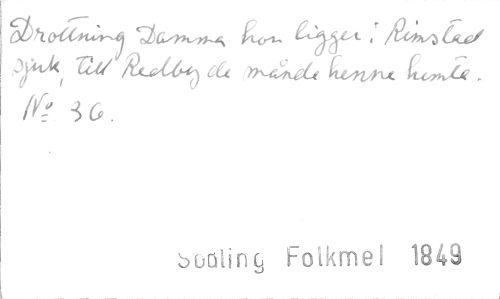 Drottning Damma hon ligger i Rimstad
sjuk, till Redby de månde henne hemta.
No 36.
Södling Folkmel 1849